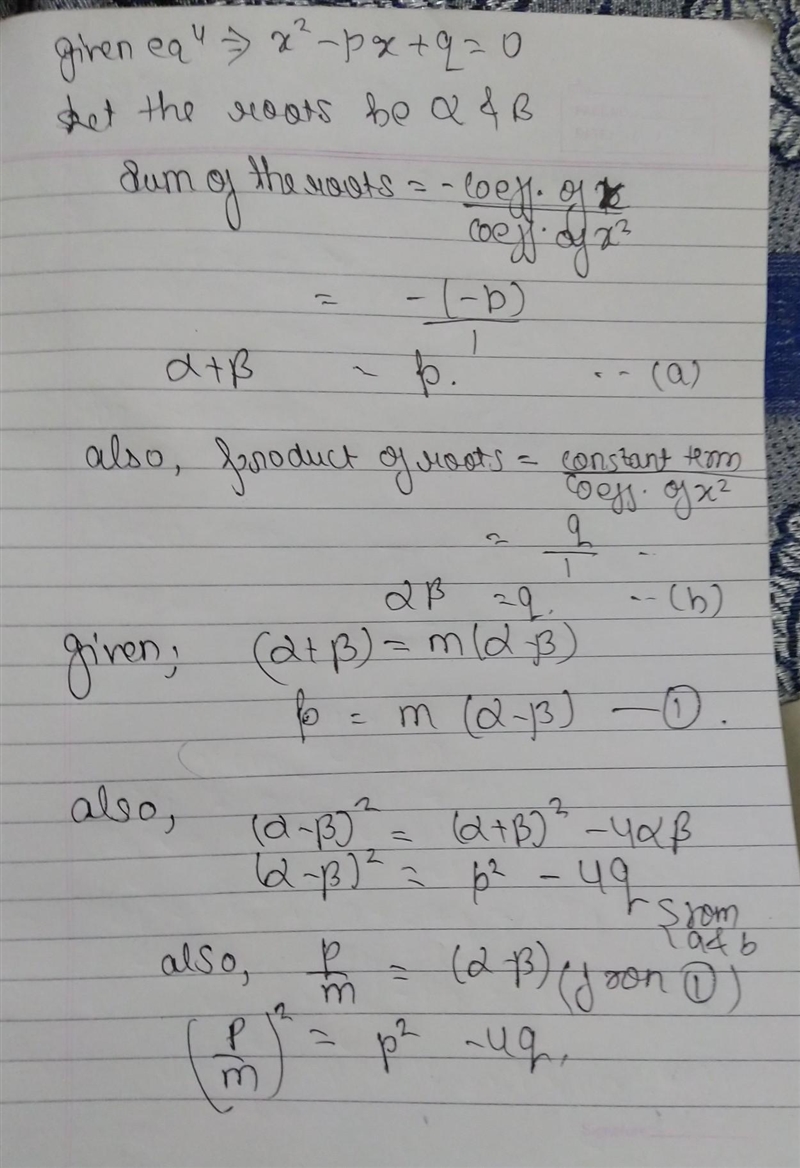 given eqⁿ ⇒ x² - px + q = 0
Let the roots be α & β
Sum of the roots = - coeff. of x / coeff. of x²
= -(-p) / 1
α+β = p. -- (a)
also, product of roots = constant term / coeff. of x²
= q / 1
αβ = q. -- (b)
given; (α+β) = m(α-β)
p = m (α-β) — ①.
also, (α-β)² = (α+β)² - 4αβ
(α-β)² = p² - 4q
{from a & b
also, p/m = (α-β) (from ①)
(p/m)² = p² - 4q.